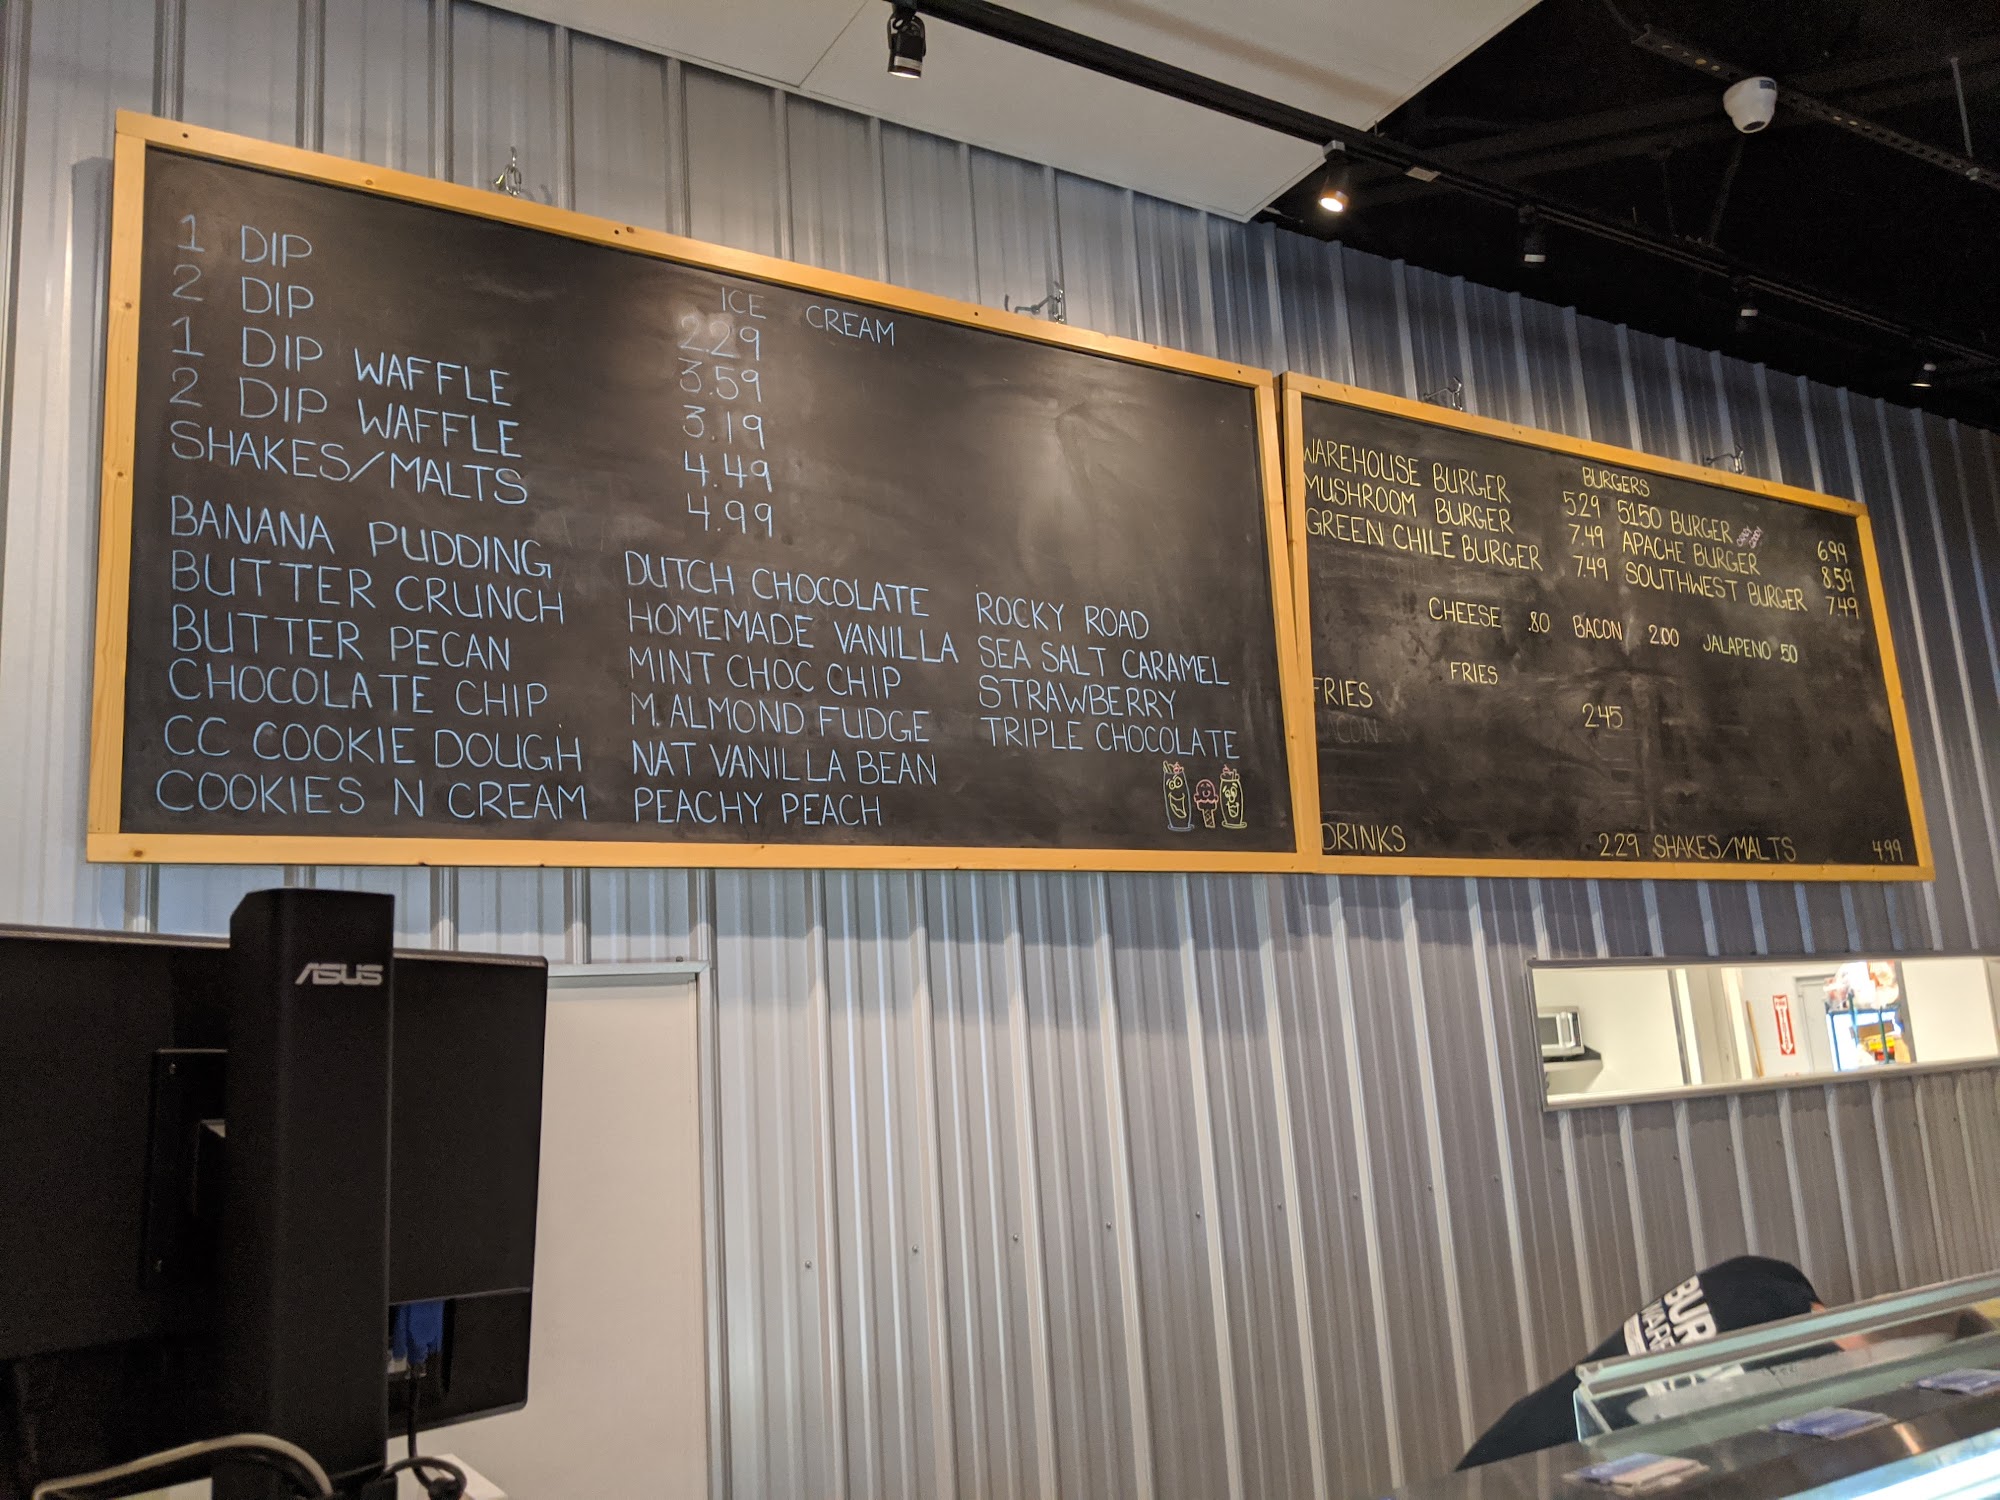 ICE CREAM
1 DIP 2.29
2 DIP 3.59
1 DIP WAFFLE 3.19
2 DIP WAFFLE 4.49
SHAKES/MALTS 4.99
BANANA PUDDING
BUTTER CRUNCH
BUTTER PECAN
CHOCOLATE CHIP
CC COOKIE DOUGH
COOKIES N CREAM
DUTCH CHOCOLATE
HOMEMADE VANILLA
MINT CHOC CHIP
M. ALMOND FUDGE
NAT VANILLA BEAN
PEACHY PEACH
ROCKY ROAD
SEA SALT CARAMEL
STRAWBERRY
TRIPLE CHOCOLATE
BURGERS
WAREHOUSE BURGER 5.29 5150 BURGER 6.99
MUSHROOM BURGER 7.49 APACHE BURGER 8.59
GREEN CHILE BURGER 7.49 SOUTHWEST BURGER 7.49
CHEESE .80 BACON 2.00 JALAPENO .50
FRIES
FRIES 2.45
DRINKS 2.29 SHAKES/MALTS 4.99
ASUS
BUR
WARE